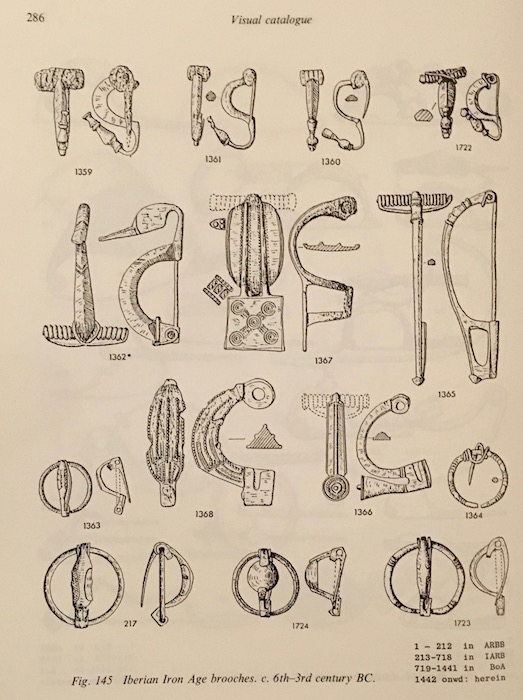 286
Visual catalogue
1359
1361
1360
1722
1362*
1367
1365
1363
1368
1366
1364
217
1724
1723
1 - 212 in ARBB
213-718 in IARB
719-1441 in BoA
1442 onwd: herein
Fig. 145 Iberian Iron Age brooches. c. 6th–3rd century BC.